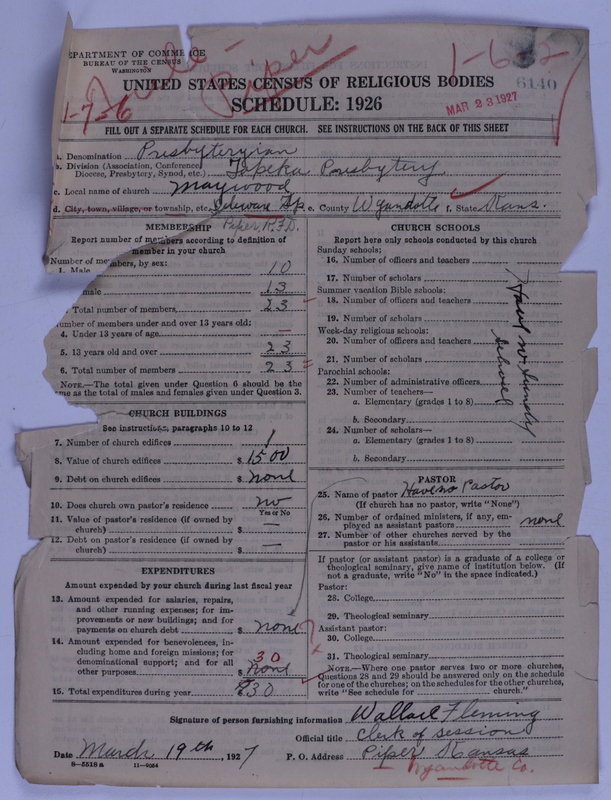 DEPARTMENT OF COMMERCE
BUREAU OF THE CENSUS
WASHINGTON
Piper
1-7-26
6140
MAR 23 1927
UNITED STATES CENSUS OF RELIGIOUS BODIES
SCHEDULE: 1926
FILL OUT A SEPARATE SCHEDULE FOR EACH CHURCH. SEE INSTRUCTIONS ON THE BACK OF THIS SHEET
a. Denomination Presbyterian
b. Division (Association, Conference, Diocese, Presbytery, Synod, etc.) Topeka Presbytery
c. Local name of church Maywood
d. City, town, village, or township, etc. Delaware Tp e. County Wyandotte f. State Kans.
Piper, R.F.D.
MEMBERSHIP
Report number of members according to definition of
member in your church
Number of members, by sex:
1. Male 10
male 13
Total number of members 23
Number of members under and over 13 years old:
4. Under 13 years of age —
5. 13 years old and over 23
6. Total number of members 23
NOTE.—The total given under Question 6 should be the
same as the total of males and females given under Question 3.
CHURCH BUILDINGS
See instructions, paragraphs 10 to 12
7. Number of church edifices 1
8. Value of church edifices $ 1500
9. Debt on church edifices $ none
10. Does church own pastor's residence no
Yes or No
11. Value of pastor's residence (if owned by
church) $ —
12. Debt on pastor's residence (if owned by
church) $ —
EXPENDITURES
Amount expended by your church during last fiscal year
13. Amount expended for salaries, repairs,
and other running expenses; for im-
provements or new buildings; and for
payments on church debt $ none
14. Amount expended for benevolences, in-
cluding home and foreign missions; for
denominational support; and for all
other purposes $ none 30
15. Total expenditures during year $ 30
CHURCH SCHOOLS
Report here only schools conducted by this church
Sunday schools:
16. Number of officers and teachers
17. Number of scholars
Summer vacation Bible schools:
18. Number of officers and teachers
19. Number of scholars
Week-day religious schools:
20. Number of officers and teachers
21. Number of scholars
Parochial schools:
22. Number of administrative officers
23. Number of teachers—
a. Elementary (grades 1 to 8)
b. Secondary
24. Number of scholars—
a. Elementary (grades 1 to 8)
b. Secondary
Have no Sunday
School
PASTOR
25. Name of pastor Have no Pastor
(If church has no pastor, write "None")
26. Number of ordained ministers, if any, em-
ployed as assistant pastors none
27. Number of other churches served by the
pastor or his assistants
If pastor (or assistant pastor) is a graduate of a college or
theological seminary, give name of institution below. (If
not a graduate, write "No" in the space indicated.)
Pastor:
28. College
29. Theological seminary
Assistant pastor:
30. College
31. Theological seminary
NOTE.—Where one pastor serves two or more churches,
Questions 28 and 29 should be answered only on the schedule
for one of the churches; on the schedules for the other churches,
write "See schedule for church."
Signature of person furnishing information Wallace Fleming
Official title Clerk of session
Date March 19th, 1927 P. O. Address Piper Kansas
Wyandotte Co.
8-5518a 11-9084